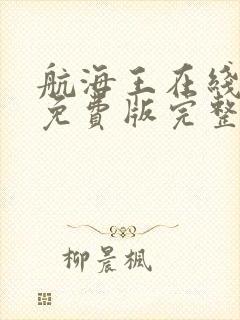 航海王在线
免費版完整
柳晨楓